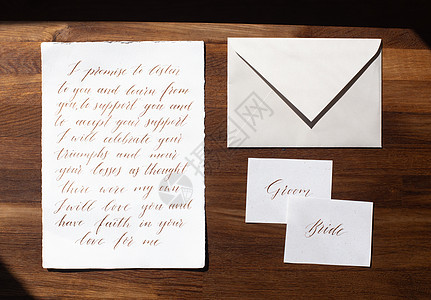 I promise to listen
to you and learn from
you, to support you and
to accept your support
I will celebrate your
triumphs and mour
your losses as thought
there were my own
I will love you and
have faith in your
love for me
Groom
Bride